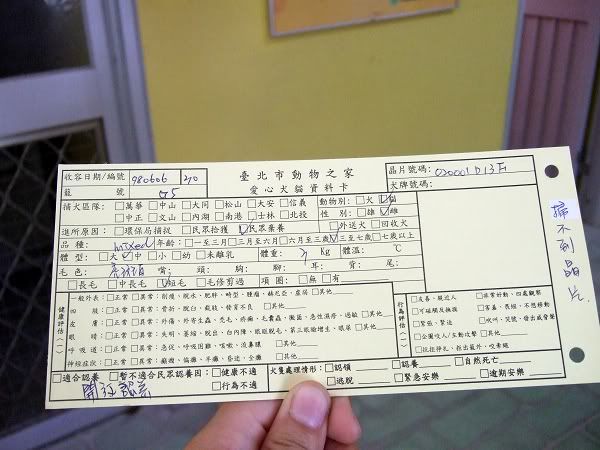 收容日期/編號 980606 270 臺北市動物之家 晶片號碼: 020001D13F
籠 號 G5 愛心犬貓資料卡 犬牌號碼:
捕犬區隊: □萬華 □中山 □大同 □松山 □大安 □信義 動物別: □犬 □貓
□中正 □文山 □內湖 □南港 □士林 □北投 性 別: □雄 □雌
進所原因: □環保局捕捉 □民眾拾獲 □民眾棄養 □外送犬 □回收犬
品種: mixed 年齡: □一至三月 □三月至六月 □六月至三歲 □三至七歲 □七歲以上
體型: □大 □中 □小 □幼 □未離乳 體重: 7 Kg 體溫: ℃
毛色: 嘴: 頭: 胸: 腳: 耳: 背: 尾:
□長毛 □中長毛 □短毛 □毛修剪過 項圈: □無 □有
健康評估(一)
一般外表: □正常 □異常: 削瘦、脫水、肥胖、畸型、腫瘤、赫尼亞、症弱 □其他
四 肢: □正常 □異常: 骨折、脫臼、截肢、發育不良 □其他
皮 膚: □正常 □異常: 外傷、外寄生蟲、禿毛、疥癬、毛囊蟲、黴菌、急性濕疹、過敏 □其他
眼 睛: □正常 □異常: 失明、萎縮、脫出、白內障、眼瞼脫毛、第三眼瞼增生、眼屎 □其他
呼吸道: □正常 □異常: 急促、呼吸困難、咳嗽、流鼻膿 □其他
神經症狀: □正常 □異常: 癲癇、偏癱、半癱、昏迷、全癱 □其他
行為評估(一)
□友善、親近人 □非常好動、四處觀察
□可碰觸及撫摸 □害羞、畏縮、不想移動
□緊張、緊迫 □吠叫、哭號、發出威脅聲
□企圖咬人/主動攻擊 □其他
□抗拒掙扎、拒出籠外、咬素繩
□適合認養 □暫不適合民眾認養因: □健康不適 犬隻處理情形: □認領 □認養 □自然死亡
□行為不適 □逃脫 □緊急安樂 □逾期安樂
掃不到晶片.